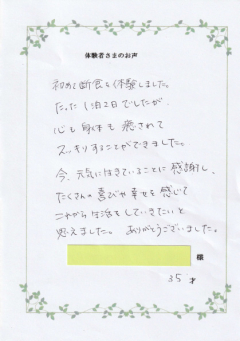 体験者さまのお声
初めて断食を体験しました。
たった1泊2日でしたが、
心も身体も癒されて
スッキリすることができました。
今、元気に生きていることに感謝し、
たくさんの喜びや幸せを感じて
これから生活をしていきたいと
思えました。ありがとうございました。
様
35才